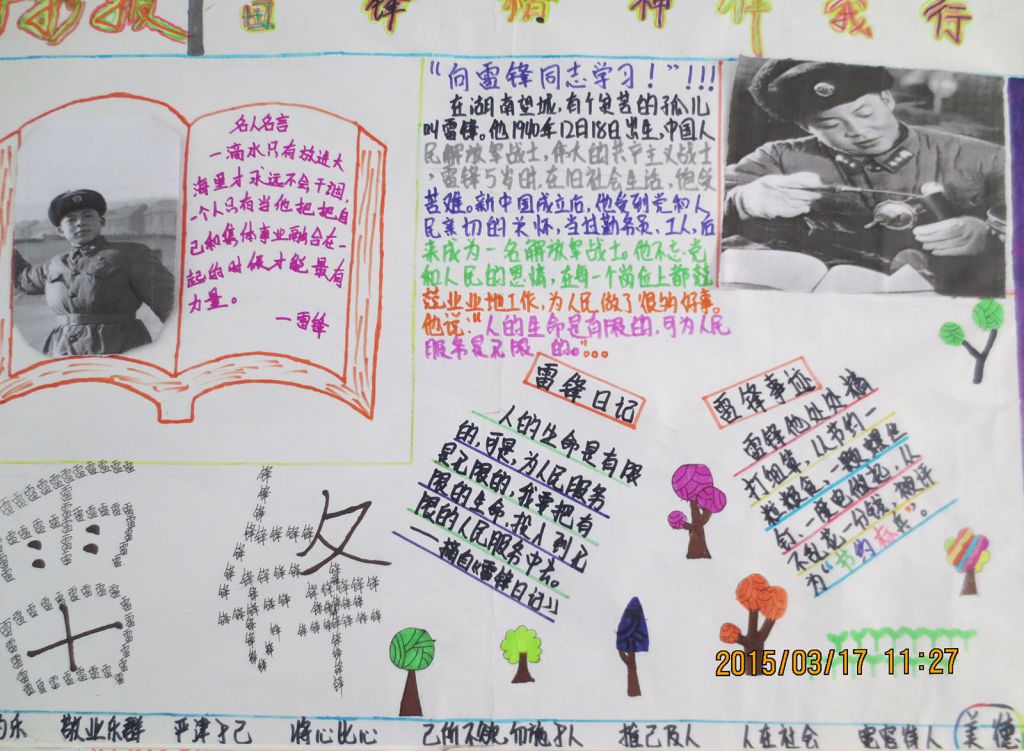 锋 精 神 伴 我 行
名人名言
一滴水只有放进大
海里才永远不会干涸,
一个人只有当他把把自
己和集体事业融合在一
起的时候才能最有
力量。
—雷锋
“向雷锋同志学习!”!!!
在湖南望城,有个贫苦的孤儿
叫雷锋。他1940年12月18日出生,中国人
民解放军战士,伟大的共产主义战士
,雷锋5岁时,在旧社会生活,他受
苦难。新中国成立后,他受到党和人
民亲切的关怀,当过勤务员、工人,后
来成为一名解放军战士。他不忘党
和人民的恩情,在每一个岗位上都兢
兢业业地工作,为人民做了很多好事。
他说:“人的生命是有限的,可为人民
服务是无限 的。”...
雷锋日记
人的生命是有限
的,可是,为人民服务
是无限的,我要把有
限的生命,投入到无
限的人民服务中去。
——摘自《雷锋日记》
雷锋事迹
雷锋他处处精
打细算,从节约一
粒粮食、一颗螺丝
钉、一度电做起,从
不乱花一分钱,被评
为“节约标兵”。
雷
锋
2015/03/17 11:27
乐 敬业乐群 严津于己 将心比心 己所不欲,勿施于人 推己及人 人在社会